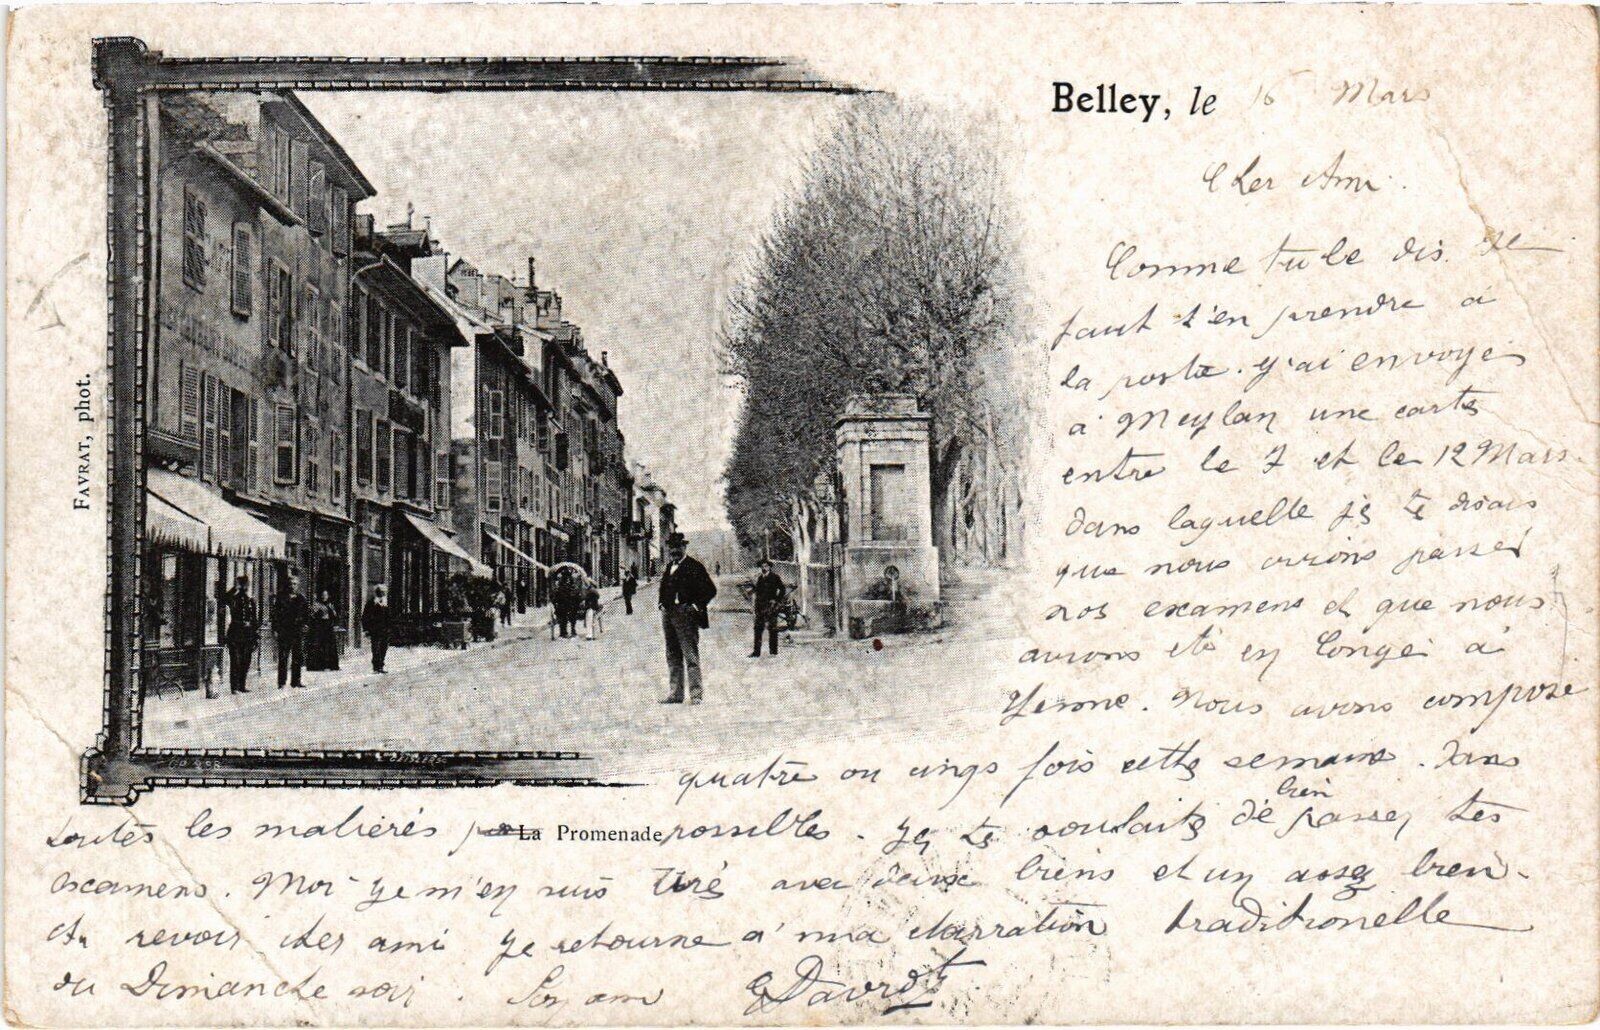 Belley, le 16 Mars
Cher Ami.
Comme tu le dis. Il
faut s'en prendre à
la poste. J'ai envoyé
à Meylan une carte
entre le 7 et le 12 Mars.
dans laquelle je te disais
que nous avions passer
nos examens et que nous
avions été en Congé à
Yenne. Nous avons composé
quatre ou cinqs fois cette semaine. Dans
toutes les matières possibles. Je te souhaite de bien passer tes
examens. Moi je m'en suis tiré avec deux biens et un assez bien.
Au revoir cher ami je retourne à ma narration traditionelle
du Dimanche soir. Ton ami G Davrdt
La Promenade
FAVRAT, phot.